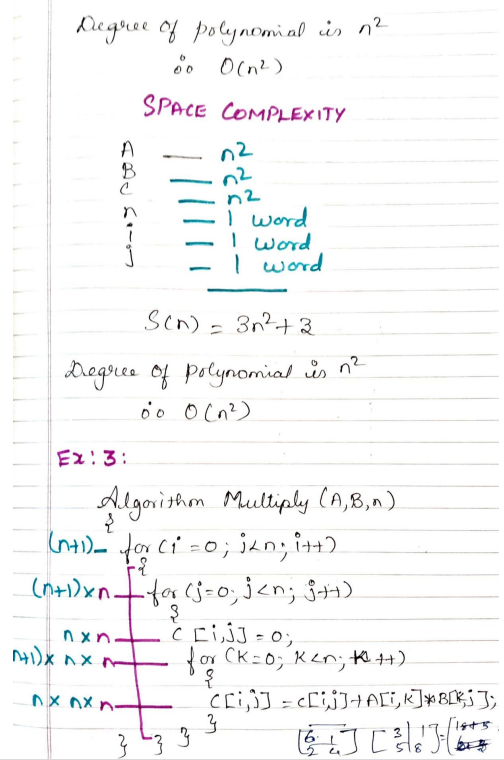 Degree of polynomial is n²
∴ O(n²)
SPACE COMPLEXITY
A — n²
B — n²
C — n²
n — 1 word
i — 1 word
j — 1 word
S(n) = 3n²+3
Degree of Polynomial is n²
∴ O(n²)
Ex: 3:
Algorithm Multiply (A,B,n)
{
(n+1) – for (i=0; i<n; i++)
{
(n+1)×n – for (j=0; j<n; j++)
{
n×n – C[i,j] = 0;
n+1)×n×n – for (K=0; K<n; K++)
{
n×n×n – C[i,j] = C[i,j]+A[i,K]*B[K,j];
}
} } }
[6 1 2 4] [3 1 5 8] = [18+5